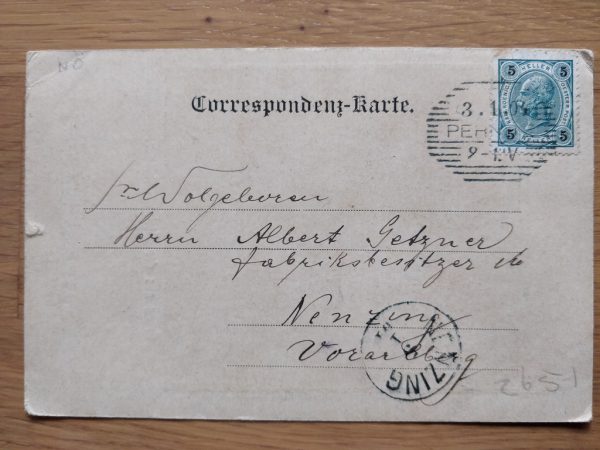 NÖ
Correspondenz-Karte.
5 HELLER 5
5 HELLER 5
3.1.
PER
9-1.V
Sr Wolgeboren
Herrn Albert Getzner
Fabriksbesitzer
Nenzing
Vorarlberg
NENZING
2651